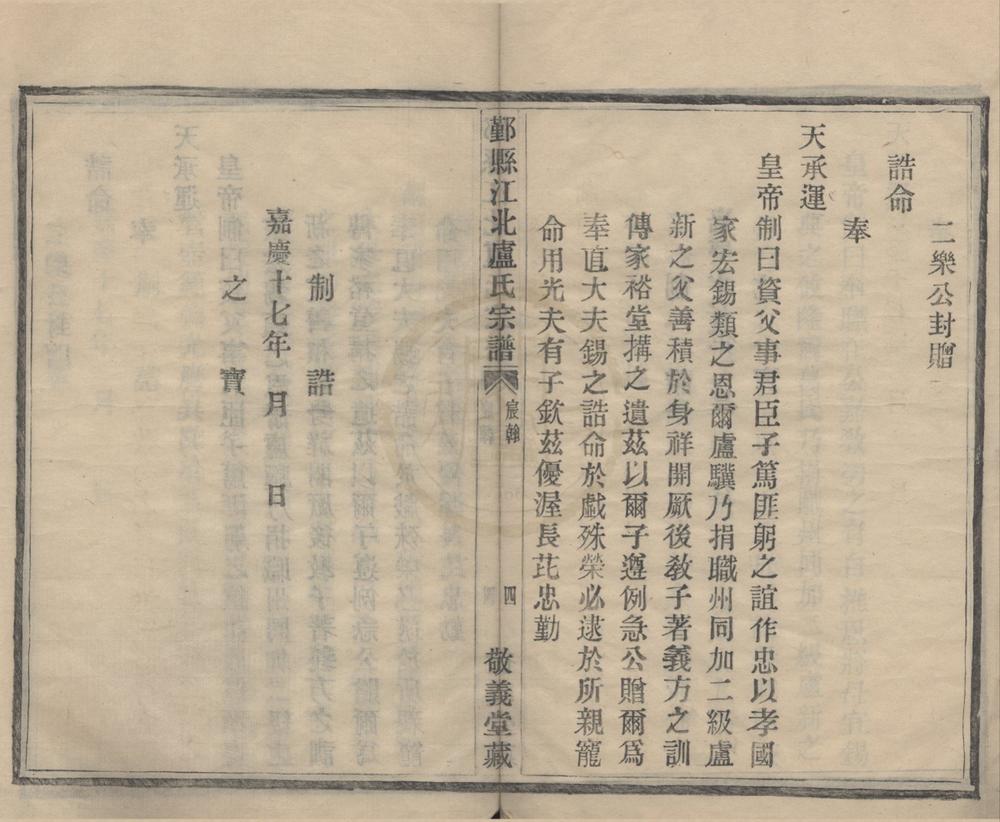 二樂公封贈
誥命
奉
天承運
皇帝制曰資父事君臣子篤匪躬之誼作忠以孝國
家宏錫類之恩爾盧驥乃捐職州同加二級盧
新之父善積於身祥開厥後教子著義方之訓
傳家裕堂搆之遺茲以爾子遵例急公贈爾爲
奉直大夫錫之誥命於戲殊榮必逮於所親寵
命用光夫有子欽茲優渥長芘忠勤
鄞縣江北盧氏宗譜
宸翰
四
敬義堂藏
制誥
之寶
嘉慶十七年 月 日